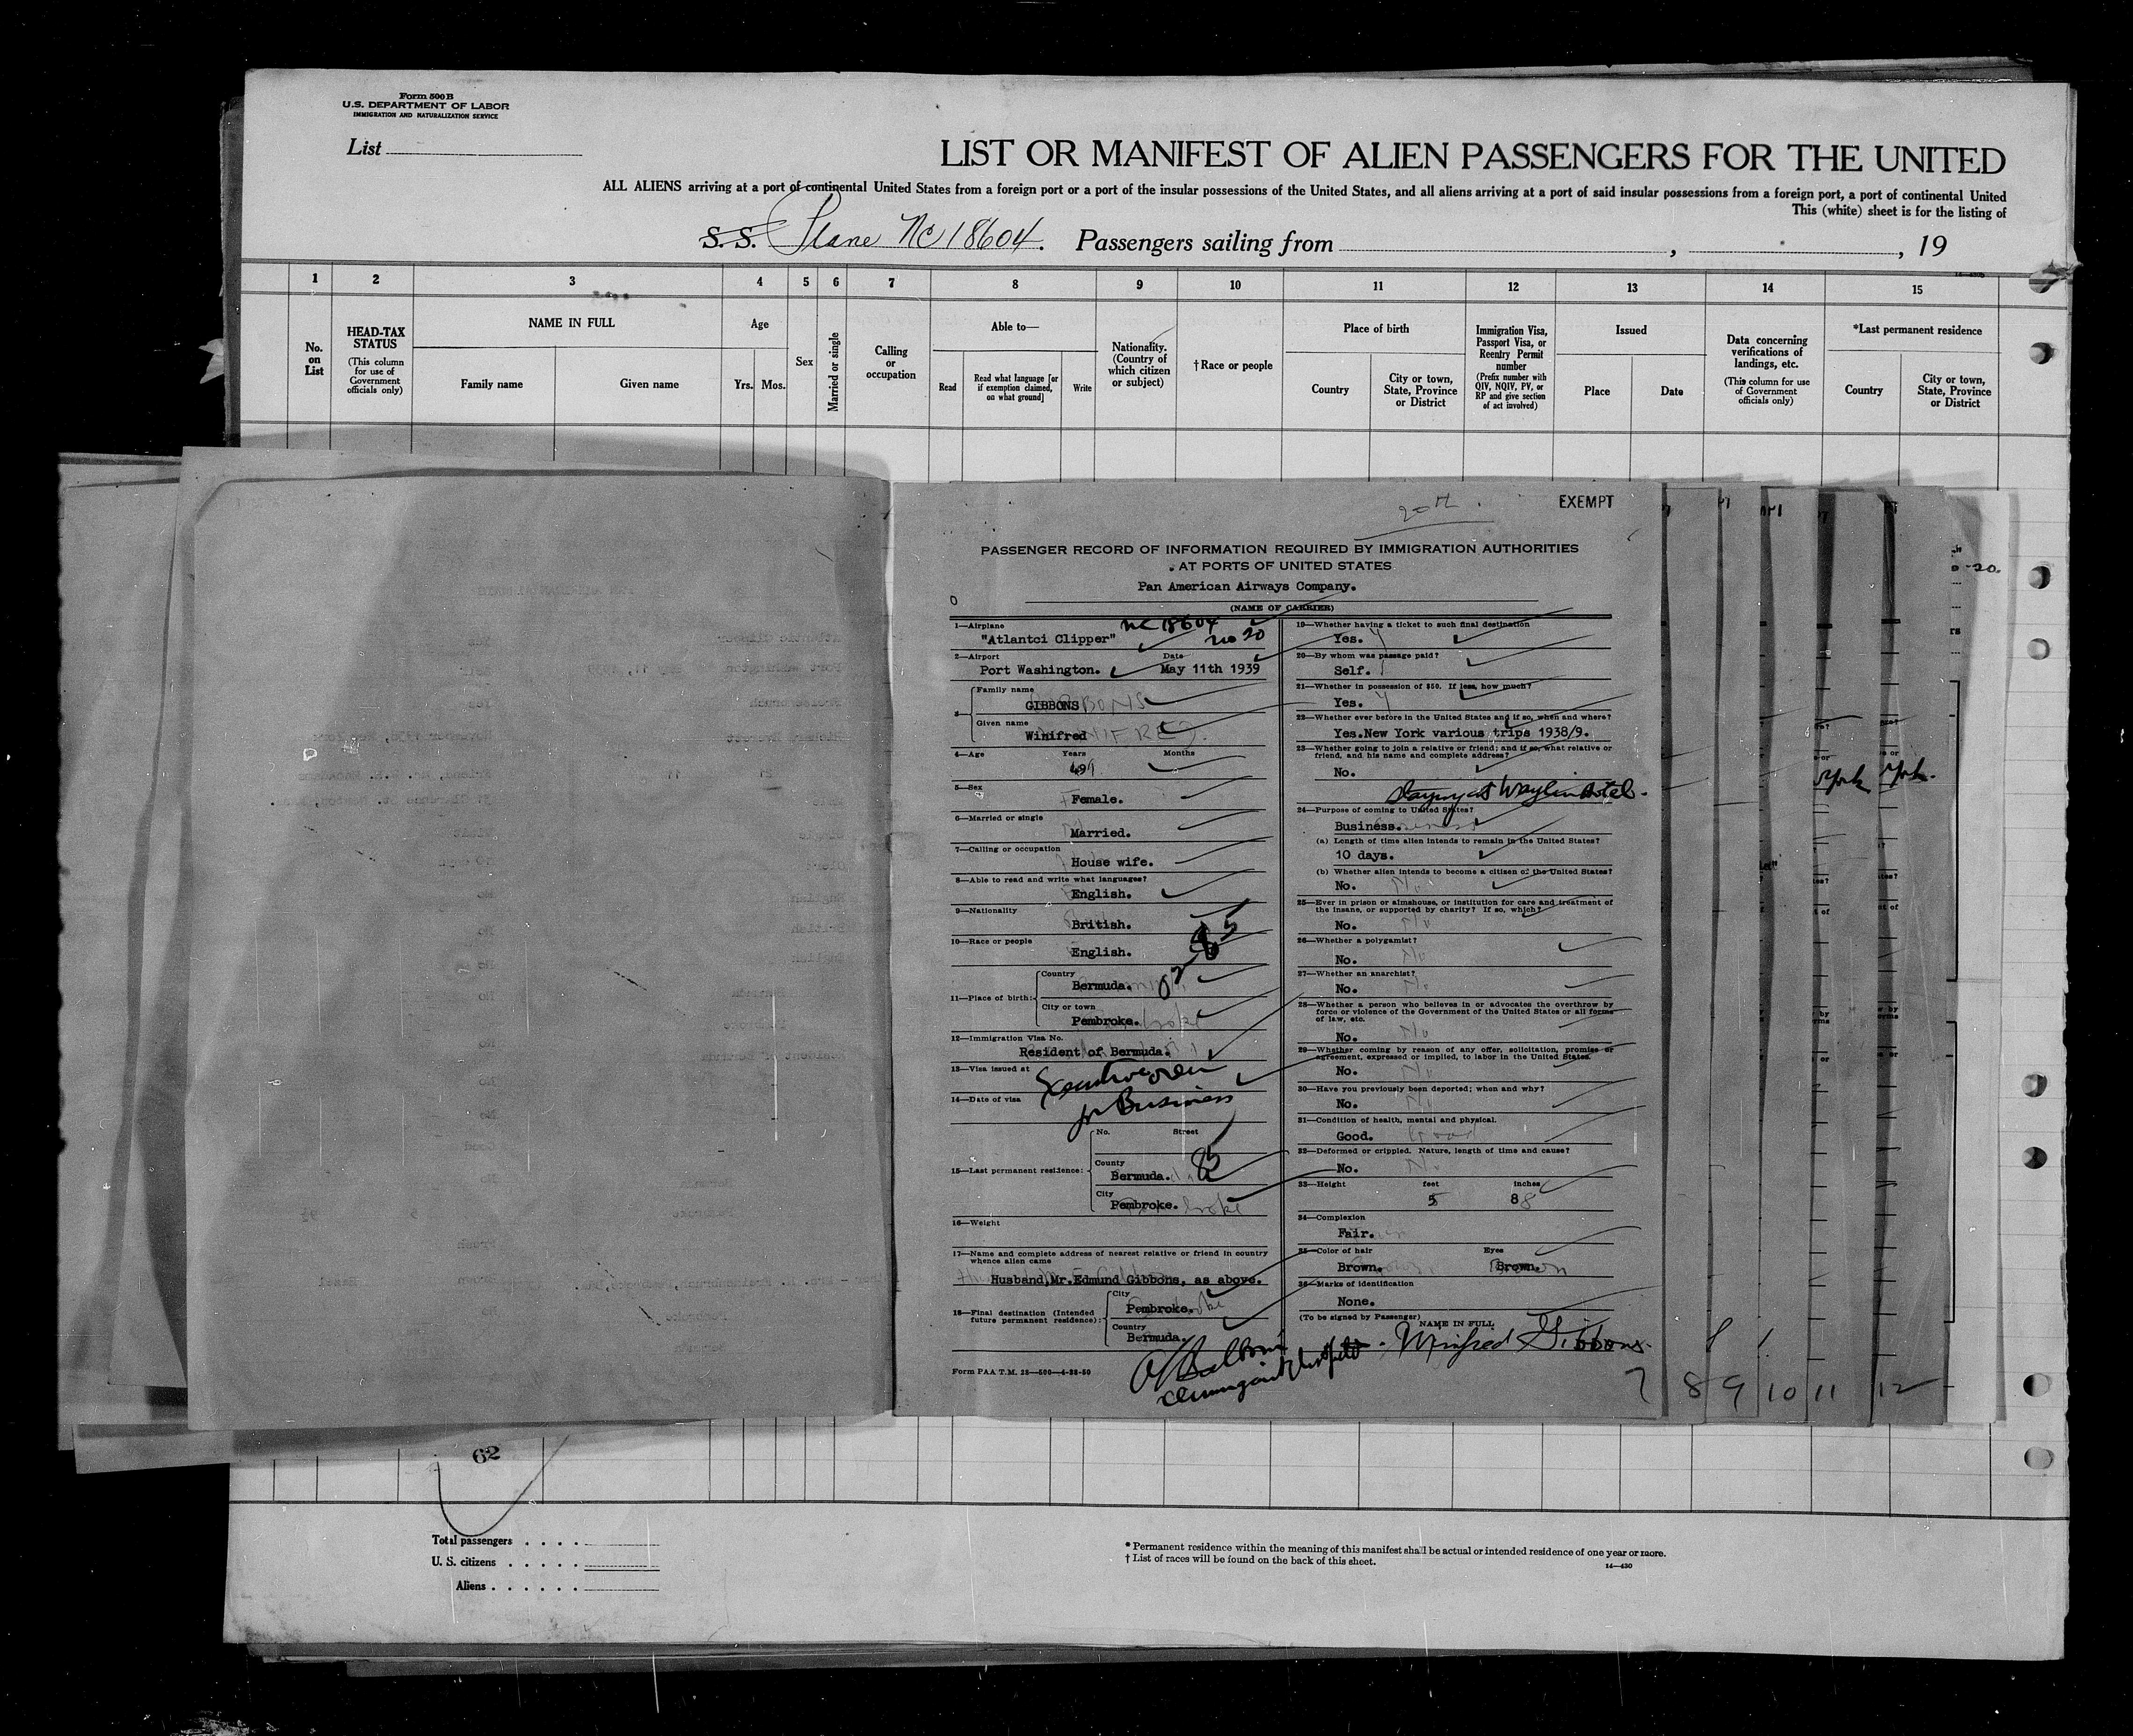 Form 500 B
U.S. DEPARTMENT OF LABOR
IMMIGRATION AND NATURALIZATION SERVICE
List
LIST OR MANIFEST OF ALIEN PASSENGERS FOR THE UNITED
ALL ALIENS arriving at a port of continental United States from a foreign port or a port of the insular possessions of the United States, and all aliens arriving at a port of said insular possessions from a foreign port, a port of continental United
This (white) sheet is for the listing of
S. S. Plane NC 18604. Passengers sailing from , , 19
1 2 3 4 5 6 7 8 9 10 11 12 13 14 15
No. on List
HEAD-TAX STATUS
(This column for use of Government officials only)
NAME IN FULL
Family name Given name
Age
Yrs. Mos.
Sex
Married or single
Calling or occupation
Able to—
Read
Read what language [or if exemption claimed, on what ground]
Write
Nationality. (Country of which citizen or subject)
† Race or people
Place of birth
Country
City or town, State, Province or District
Immigration Visa, Passport Visa, or Reentry Permit number
(Prefix number with QIV, NQIV, PV, or RP and give section of act involved)
Issued
Place Date
Data concerning verifications of landings, etc.
(This column for use of Government officials only)
*Last permanent residence
Country
City or town, State, Province or District
20th.
EXEMPT
PASSENGER RECORD OF INFORMATION REQUIRED BY IMMIGRATION AUTHORITIES
AT PORTS OF UNITED STATES
Pan American Airways Company.
(NAME OF CARRIER)
1—Airplane NC 18604
"Atlantci Clipper" no 20
2—Airport Date
Port Washington. May 11th 1939
3 Family name
GIBBONS
Given name
Winifred
4—Age Years Months
49
5—Sex
Female.
6—Married or single
Married.
7—Calling or occupation
House wife.
8—Able to read and write what languages?
English.
9—Nationality
British.
10—Race or people
English.
11—Place of birth: Country
Bermuda.
City or town
Pembroke.
12—Immigration Visa No.
Resident of Bermuda.
13—Visa issued at
14—Date of visa
for Business
15—Last permanent residence: No. Street
County
Bermuda.
City
Pembroke.
16—Weight
17—Name and complete address of nearest relative or friend in country whence alien came
Husband, Mr. Edmund Gibbons, as above.
18—Final destination (Intended future permanent residence): City
Pembroke.
Country
Bermuda.
Form PAA T.M. 23—500—4-38-50
19—Whether having a ticket to such final destination
Yes.
20—By whom was passage paid?
Self.
21—Whether in possession of $50. If less, how much?
Yes.
22—Whether ever before in the United States and if so, when and where?
Yes.New York various trips 1938/9.
23—Whether going to join a relative or friend; and if so, what relative or friend, and his name and complete address?
No.
24—Purpose of coming to United States?
Business.
(a) Length of time alien intends to remain in the United States?
10 days.
(b) Whether alien intends to become a citizen of the United States?
No.
25—Ever in prison or almshouse, or institution for care and treatment of the insane, or supported by charity? If so, which?
No.
26—Whether a polygamist?
No.
27—Whether an anarchist?
No.
28—Whether a person who believes in or advocates the overthrow by force or violence of the Government of the United States or all forms of law, etc.
No.
29—Whether coming by reason of any offer, solicitation, promise or agreement, expressed or implied, to labor in the United States.
No.
30—Have you previously been deported; when and why?
No.
31—Condition of health, mental and physical.
Good.
32—Deformed or crippled. Nature, length of time and cause?
No.
33—Height feet inches
5 8
34—Complexion
Fair.
35—Color of hair Eyes
Brown. Brown.
36—Marks of identification
None.
(To be signed by Passenger)
NAME IN FULL
Winifred Gibbons.
7 8 9 10 11 12
62
Total passengers
U. S. citizens
Aliens
* Permanent residence within the meaning of this manifest shall be actual or intended residence of one year or more.
† List of races will be found on the back of this sheet.
14—430